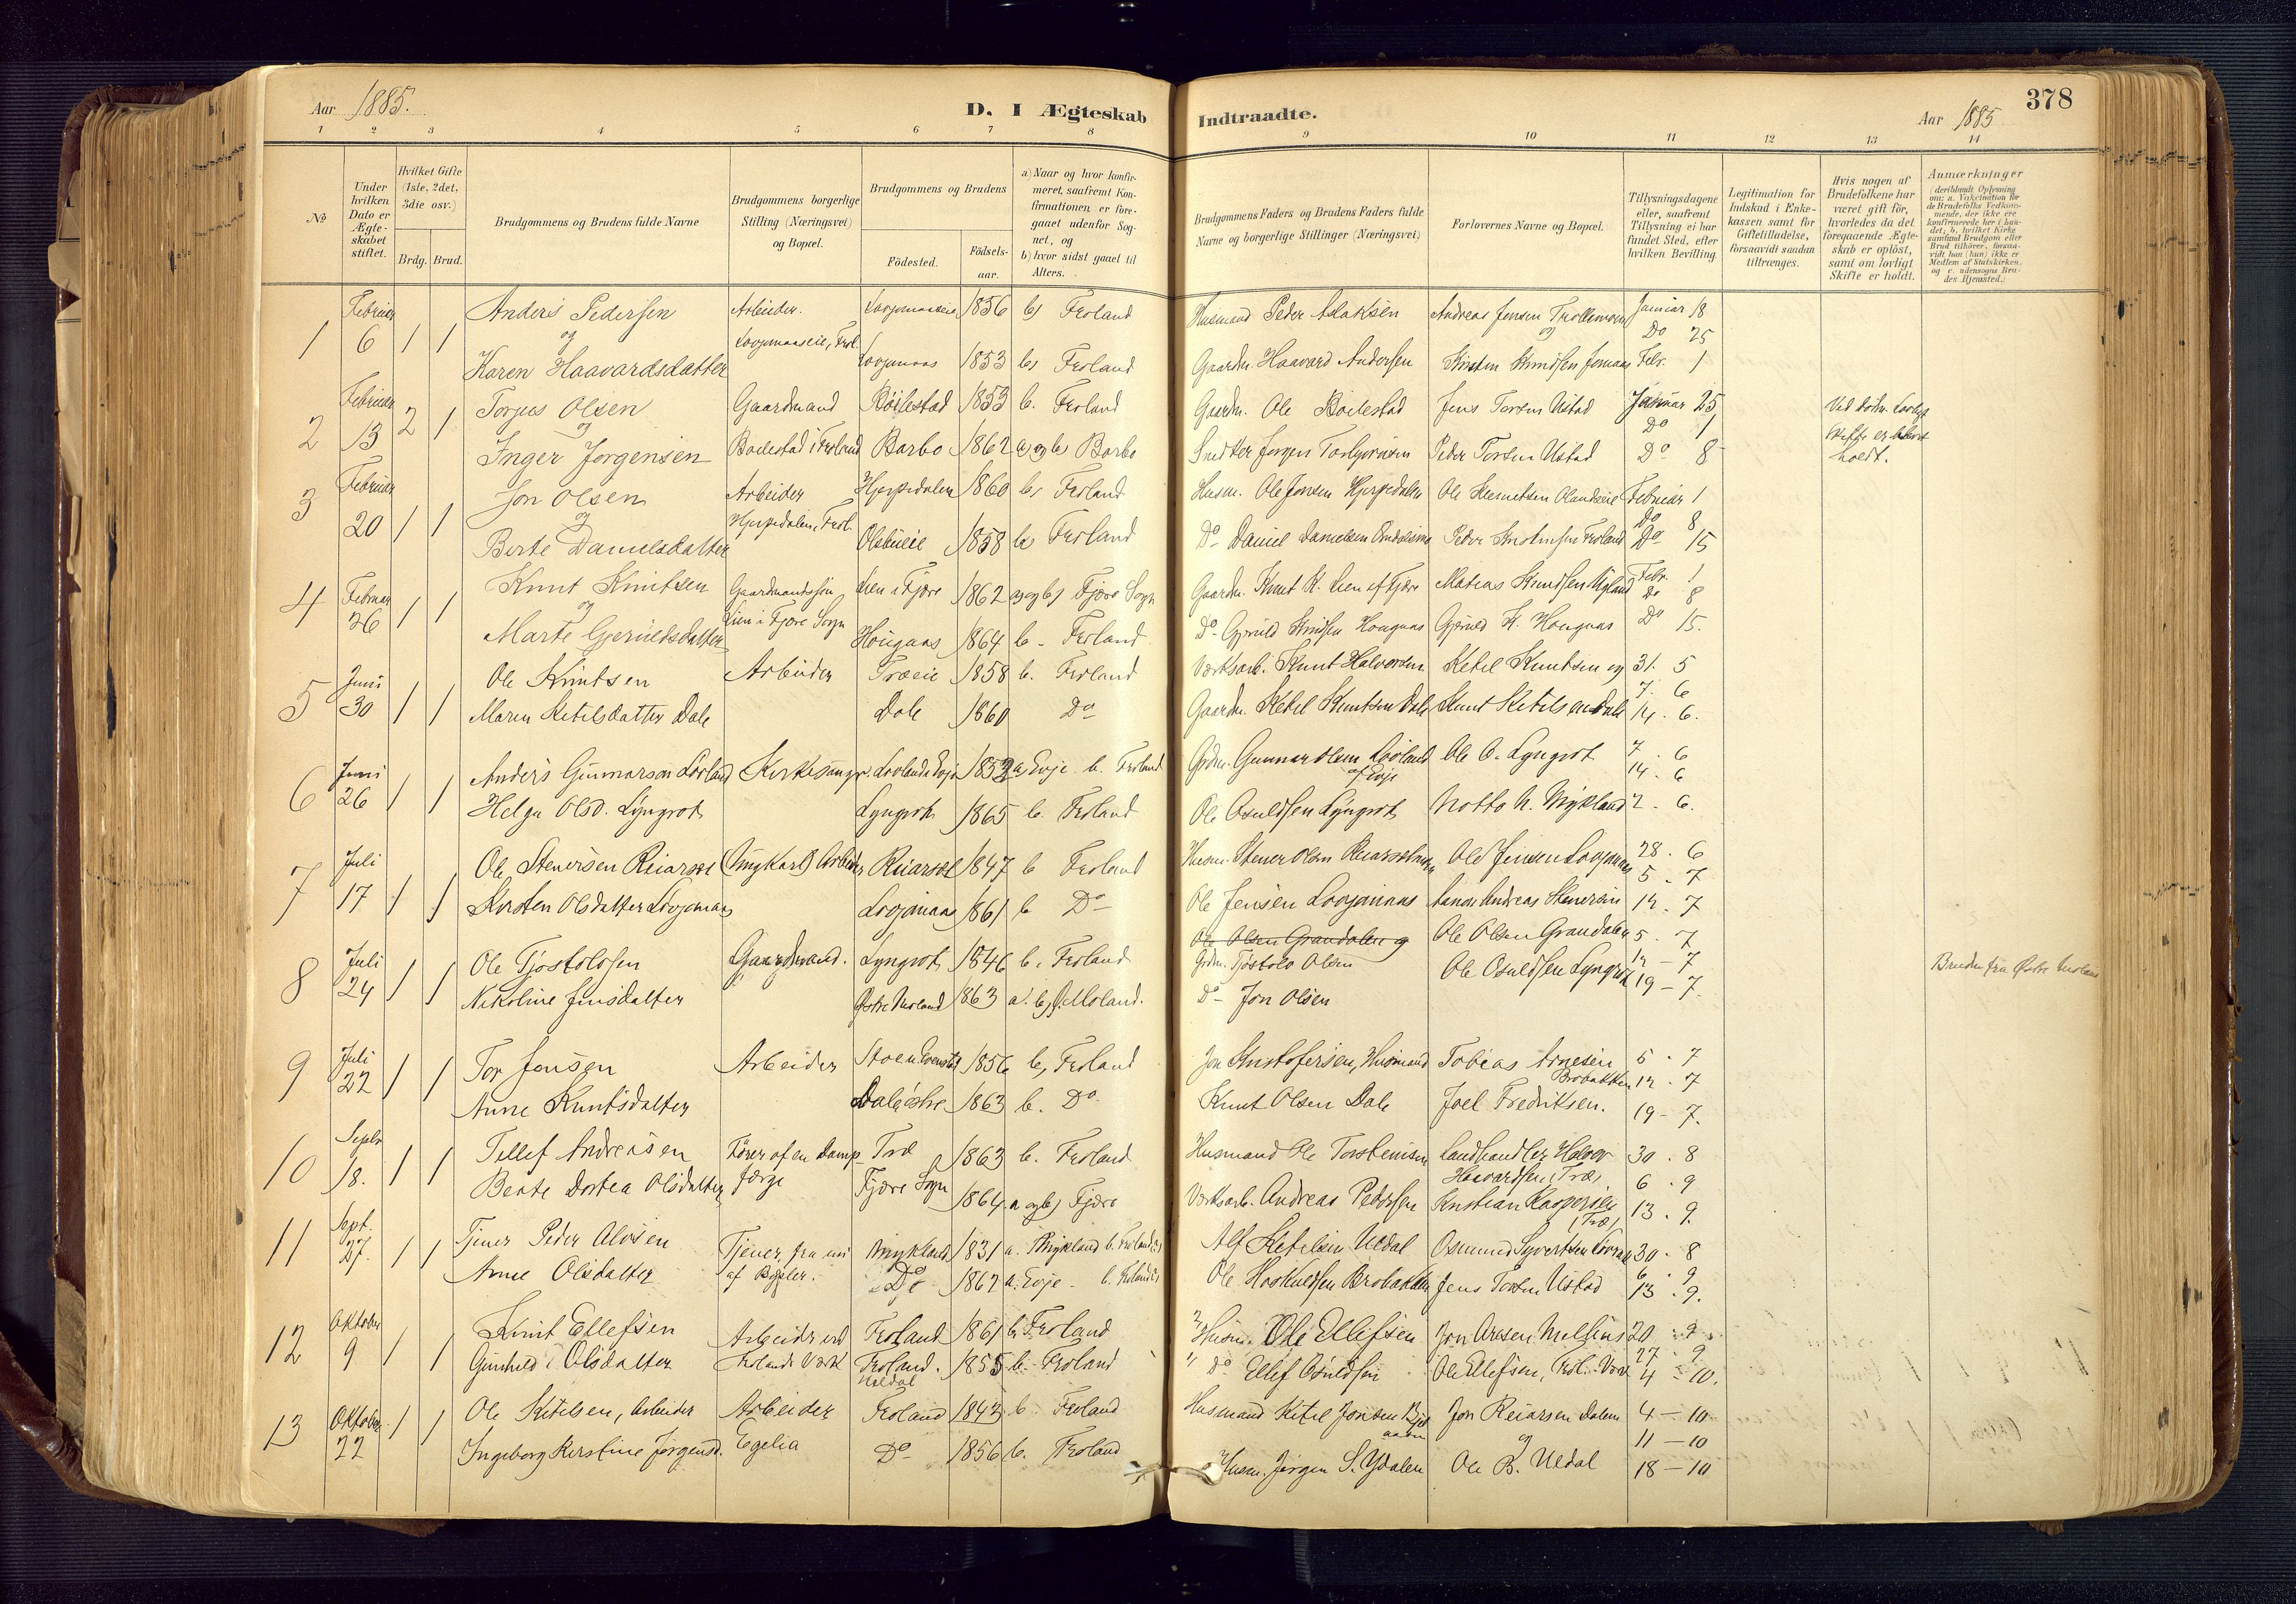 378
Aar 1885.
D. I Ægteskab Indtraadte.
Aar 1885
1 2 3 4 5 6 7 8 9 10 11 12 13 14
No
Under hvilken Dato er Ægteskabet stiftet.
Hvilket Gifte (1ste, 2det, 3die osv.)
Brdg. Brud.
Brudgommens og Brudens fulde Navne
Brudgommens borgerlige Stilling (Næringsvei) og Bopæl.
Brudgommens og Brudens
Fødested. Fødselsaar.
a) Naar og hvor konfirmeret, saafremt Konfirmationen er foregaaet udenfor Sognet, og b) hvor sidst gaaet til Alters.
Brudgommens Faders og Brudens Faders fulde Navne og borgerlige Stillinger (Næringsvei)
Forlovernes Navne og Bopæl.
Tillysningsdagene eller, saafremt Tillysning ei har fundet Sted, efter hvilken Bevilling.
Legitimation for Indskud i Enkekassen samt for Giftetilladelse, forsaavidt saadan tiltrænges.
Hvis nogen af Brudefolkene har været gift før, hvorledes da det foregaaende Ægteskab er opløst, samt om lovligt Skifte er holdt.
Anmærkninger (deriblandt Oplysning om: a. Vakcination for de Brudefolks Vedkommende, der ikke ere konfirmerede her i landet, b. hvilket Kirkesamfund Brudgom eller Brud tilhører, forsaavidt han (hun) ikke er Medlem af Statskirken, og c. udensogns Brudes Hjemsted.)
1 Februar 6 1 1 Anders Pedersen Arbeider. 1856 b) Froland Husmand Peder Aslaksen Andreas Jensen Januar 18
og og Do 25
Karen Haavardsdatter 1853 b) Froland Gaardm. Haavard Andersen Febr. 1
2 Februar 13 2 1 Torjus Olsen Gaardmand Bøilestad 1853 b. Froland Gaardm. Ole Boilestad Jens Torsen Ustad Januar 25
og Do 1
Inger Jørgensen Boilestad i Froland Barbo 1862 a) og b) Barbo Snedker Jørgen Peder Torsen Ustad Do 8
holdt.
3 Februar 20 1 1 Jon Olsen Arbeider Hjerpedalen 1860 b) Froland Husm. Ole Jonsen Hjerpedalen Februar 1
og Hjerpedalen, Frol. Do 8
Berte Danielsdatter 1858 b) Froland Do Daniel Danielsen Do 15
4 Februar 26 1 1 Knut Knutsen Gaardmandssøn Lien i Fjære 1862 a) og b) Fjære Sogn Gaardm. Knut K. Lien af Fjære Matias Knudsen Febr. 1
og Lien i Fjære Sogn Do 8
Marte Gjeruldsdatter Hougaas 1864 b. Froland Do Gjeruld Knudsen Hougaas Gjeruld K. Hougaas Do 15.
5 Juni 30 1 1 Ole Knutsen Arbeider Træeie 1858 b. Froland Værksarb. Knut Halvorsen Ketil Knutsen og 31. 5
7. 6
Maren Ketilsdatter Dale Dale 1860 Do Gaardm. Ketil Knutsen Dale Knut Ketilsen Dale 14. 6.
6 Juni 26 1 1 Anders Gunnarson Løvland Kirkesanger. Løvland i Evje 1852 a) Evje b. Froland Grdm. Gunnar Olsen Løvland Ole O. Lyngrot 7. 6
af Evje 14. 6
Helga Olsd. Lyngrot Lyngrot 1865 b. Froland Ole Osuldsen Lyngrot Notto N. Mykland 6.
7 Juli 17 1 1 Ole Stenersen Reiarsøl (Ungkarl) Arbeider Reiarsøl 1847 b Froland Husm. Stener Olsen Ole Jensen 28. 6
5. 7
Kirsten Olsdatter 1861 b Do Ole Jensen Andreas Stenersen 12. 7
8 Juli 24 1 1 Ole Olsen Grandalen og Ole Olsen Grandalen 5. 7
Ole Tjøstolvsen Gaardmand. Lyngrot 1846 b. Froland Grdm. Tjøstolv Olsen 12 – 7
Nikoline Jensdatter Østre Moland 1863 a. b) Ø. Moland. Do Jon Olsen Ole Osuldsen Lyngrot 19 – 7.
Bruden fra Østre Moland
9 Juli 22 1 1 Tor Jensen Arbeider 1856 b) Froland Jon Kristofersen, Husmand Tobias Arnesen 5. 7
Brobakken 12. 7
Anne Knutsdatter Dale østre 1863 b. Do Knut Olsen Dale Joel Fredriksen. 19 – 7.
10 Septr 18. 1 1 Tellef Andreasen Fører af en Damp- Træ 1863 b. Froland Husmand Ole Torstensen Landhandler Halvor 30. 8
færge Haavardsen, Træ, 6. 9
Berte Dortea Olsdatter Fjære Sogn 1864. a og b) Fjære Værksarb. Andreas Pedersen Kristian Kaspersen 13. 9.
(Træ)
11 Sept. 27. 1 1 Tjener Peder Alvsen Tjener, fra en Mykland 1831 a. Mykland b. Froland Alf Ketilsen Uldal Osmund Syvertsen 30. 8
6. 9
Anne Olsdatter af Bygder. Do 1862 a. Evje b. Froland Ole Hoskuldsen Brobakken Jens Torsen Ustad 13. 9.
12 Oktober 9 1 1 Knut Ellefsen Arbeider ved Froland 1861 b. Froland Husm. Ole Ellefsen Jon 20. 9
27. 9
Gunhild Olsdatter Frolands Værk Froland. 1855 b. Froland " Do Ellef Osuldsen Ole Ellefsen, Frol. Værk 4 – 10.
Uldal
13 Oktober 22 1 1 Ole Ketilsen, Arbeider Arbeider Froland 1843 b. Froland Husmand Ketil Jonsen Jon Reiarsen Dalen 4 – 10
og 11 – 10
Ingeborg Kirstine Jørgensd. Egelia Do 1856 b. Froland Husm. Jørgen S. Ydalen Ole B. Uldal 18 – 10